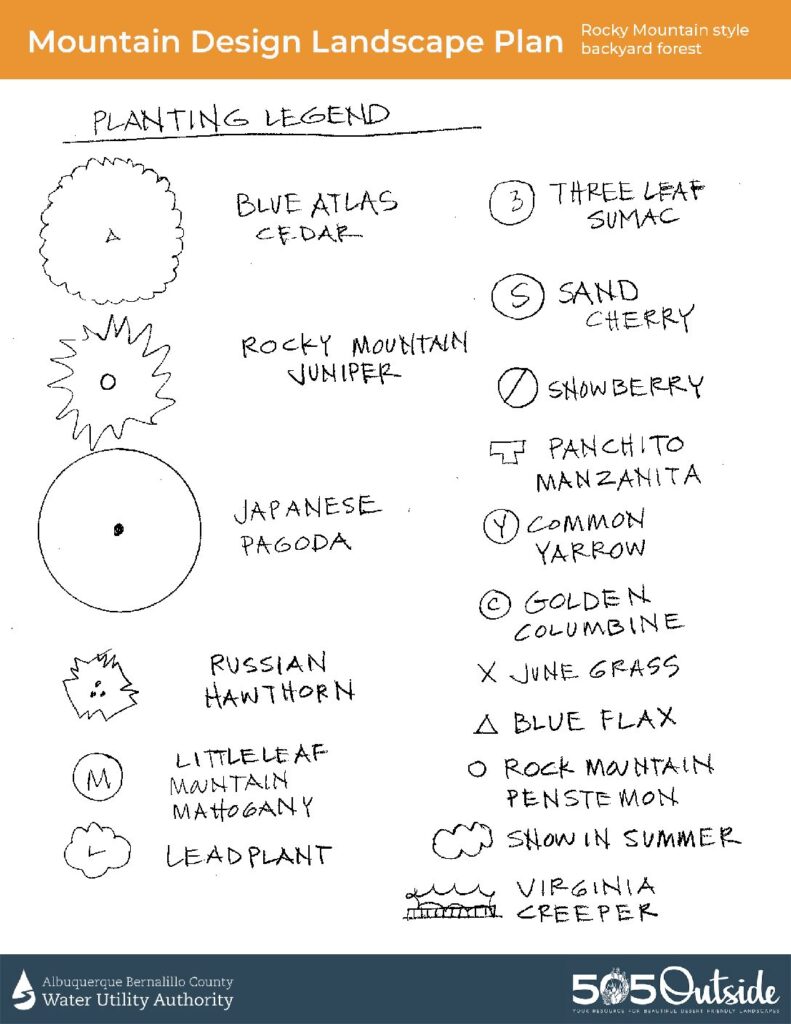 Mountain Design Landscape Plan
Rocky Mountain style
backyard forest
PLANTING LEGEND
BLUE ATLAS
CEDAR
ROCKY MOUNTAIN
JUNIPER
JAPANESE
PAGODA
RUSSIAN
HAWTHORN
M
LITTLELEAF
MOUNTAIN
MAHOGANY
L
LEADPLANT
3
THREE LEAF
SUMAC
S
SAND
CHERRY
SNOWBERRY
PANCHITO
MANZANITA
Y
COMMON
YARROW
C
GOLDEN
COLUMBINE
X JUNE GRASS
BLUE FLAX
ROCK MOUNTAIN
PENSTEMON
SNOW IN SUMMER
VIRGINIA
CREEPER
Albuquerque Bernalillo County
Water Utility Authority
505Outside
YOUR RESOURCE FOR BEAUTIFUL DESERT FRIENDLY LANDSCAPES